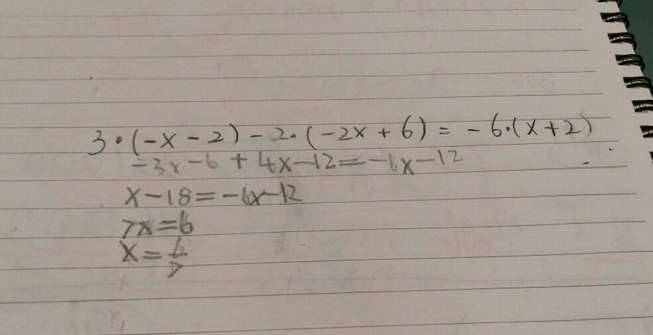 3·(-x-2)-2·(-2x+6)=-6·(x+2)
-3x-6+4x-12=-6x-12
x-18=-6x-12
7x=6
x=6/7